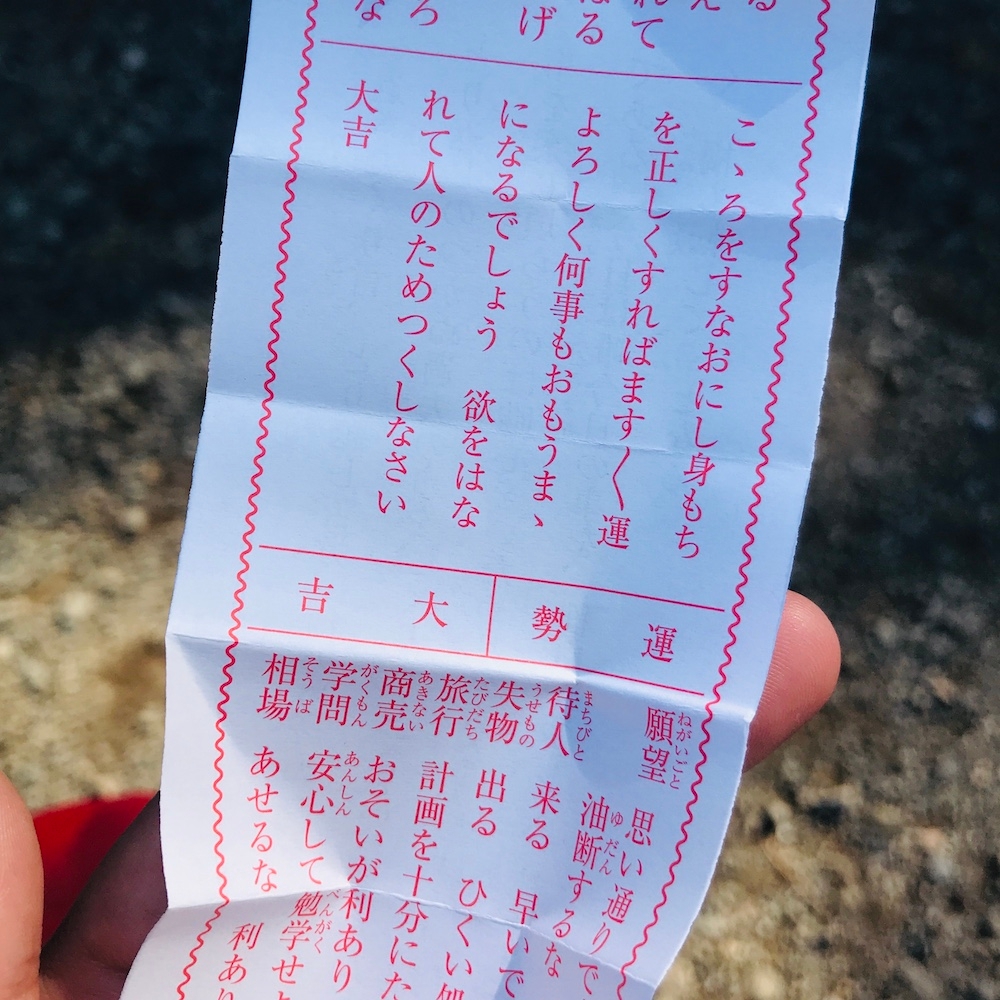 こゝろをすなおにし身もち
を正しくすればます〳〵運
よろしく何事もおもうまゝ
になるでしょう 欲をはな
れて人のためつくしなさい
大吉
運勢
大吉
願望 ねがいごと 思い通りで
油断するな ゆだん
待人 まちびと 来る 早いで
失物 うせもの 出る ひくい処
旅行 たびだち 計画を十分にた
商売 あきない おそいが利あり
学問 がくもん 安心して勉学せ あんしん べんがく
相場 そうば あせるな 利あり